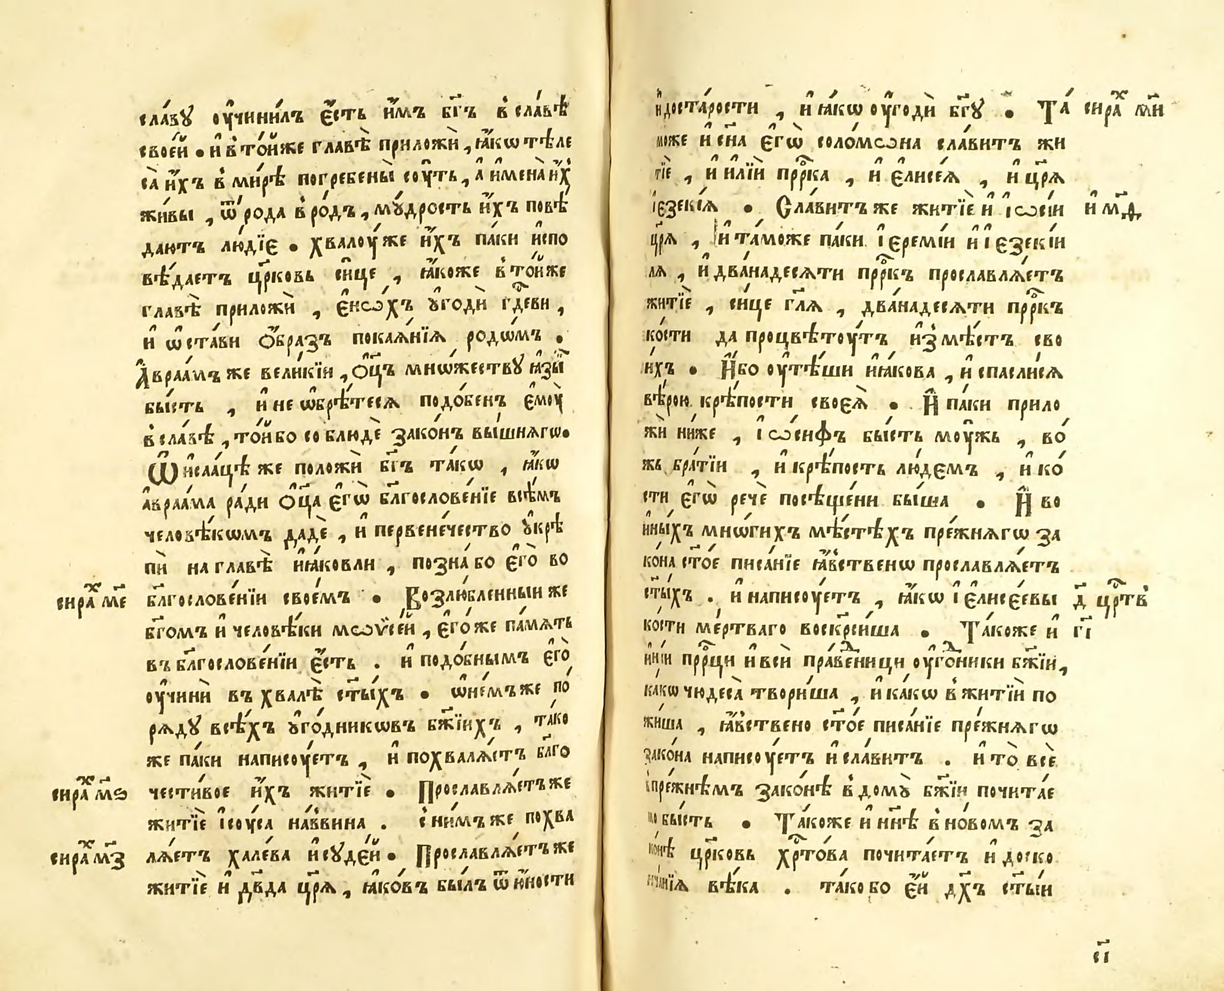 сла́вꙋ оу҆чини́лъ є҆́сть и҆̀мъ бг҃ъ в̾сла́вѣ
свое́й • и҆в̾то́йже главѣ̀ приложѝ , ꙗ҆́кѡ тѣле
са̀ и҆́хъ в̾ми́рѣ погребены̀ сꙋ́ть , а҆имена̀ и҆́хъ
жи́вы , ѿ ро́да в̾ро́дъ , мꙋ́дрость и҆́хъ повѣ́
даютъ лю́дїє • хвалоу́ же и҆́хъ па́ки и҆спо
вѣ́даетъ цр҃ковь си́це , ꙗ҆́коже в̾то́йже
главѣ̀ приложѝ , є҆нѡ́хъ ᲂу҆годѝ гдⷭ҇еви ,
и҆ ѡ҆ста́ви ѻ҆́бразъ покаѧ́нїѧ родѡ́мъ .
А҆враа́мъ же вели́кїи , ѻ҆ц҃ъ мнѡ́жествꙋ ꙗ҆зы́къ
бы́сть , и҆ не ѡ҆брѣ́тесѧ подо́бенъ є҆мꙋ̀
в̾сла́вѣ , то́йбо со блюдѐ зако́нъ вы́шнѧгѡ •
Ѿ и҆саа́цѣ же положѝ бг҃ъ та́кѡ , ꙗ҆́кѡ
а҆враа́ма ра́ди ѻ҆ц҃а є҆гѡ̀ бл҃гослове́нїе всѣ́мъ
человѣ́кѡмъ дадѐ , и҆ первене́чество ᲂу҆крѣ
пѝ на главѣ̀ и҆ꙗ́ковли , позна́ бо є҆го̀ во
сира́х м҃е бл҃гослове́нїи свое́мъ • Возлю́бленныи же
бг҃омъ и҆ человѣ́ки мѡѷсе́й , є҆го́же па́мѧть
въ бл҃гослове́нїи є҆́сть . и҆ подо́бнымъ є҆го̀
оу҆чинѝ въ хвалѣ̀ ст҃ы́хъ • ѡ҆не́мъже по
рѧ́дꙋ всѣ́хъ ᲂу҆го́дникѡвъ бж҃їихъ , та́ко
же па́ки написоу́етъ , и҆ похвалѧ́етъ бл҃го
сира́х м҃ѕ чести́вое и҆́хъ житїѐ • Прославлѧ́етъ же
житїѐ і҆соу́са на́ввина . с̾ни́мъже похва
сира́х м҃з лѧ́етъ хале́ва и҆сꙋде́й • Прославлѧ́етъ же
житїѐ и҆ дв҃да цр҃ѧ , ꙗ҆ко́въ бы́лъ ѿ ю҆́ности
и҆до ста́рости , и҆ ꙗ҆́кѡ оу҆годѝ бг҃ꙋ • Та́ сира́х м҃и
може и҆ сн҃а є҆гѡ̀ соломѡ́на сла́витъ жи
тїѐ , и҆ и҆лїѝ прⷪ҇рка , и҆ є҆лисе́ѧ , и҆ цр҃ѧ
і҆езекі́ѧ • Сла́витъ же житїѐ и҆ і҆ѡсі́и и҆ м҃ѳ
цр҃ѧ , и҆ та́може па́ки і҆еремі́и и҆ і҆езекі́и
лѧ , и҆ двана́десѧти прⷪ҇ркъ прославлѧ́етъ
житїѐ , си́це гл҃ѧ , двана́десѧти прⷪ҇рк
ко́сти да процвѣтоу́тъ и҆з̾мѣ́стъ сво
и́хъ • И҆́бо оу҆тѣ́ши и҆ꙗ́кова , и҆ спасли́сѧ
вѣ́рою крѣ́пости своеѧ̀ • И҆ па́ки прило
жѝ ни́же , і҆ѡ́сифъ бы́сть моу́жъ , во́
жь бра́тїи , и҆ крѣ́пость лю́демъ , и҆ ко́
сти є҆гѡ̀ речѐ посѣще́ни бы́ша • И҆ во
и҆ны́хъ мнѡ́гихъ мѣ́стѣхъ пре́жнѧгѡ за
ко́на ст҃о́е писа́нїе ꙗ҆́вственѡ прославлѧ́етъ
ст҃ы́хъ . и҆ написоу́етъ , ꙗ҆́кѡ і҆елисе́евы д҃ црⷭ҇тв
ко́сти ме́ртваго воскреси́ша • Та́коже и҆ г҃і
и҆ні́и прⷪ҇рцы и҆ всѝ пра́веници оу҆го́дники бж҃їи,
ка́кѡ чюдеса̀ твори́ша , и҆ ка́кѡ в̾житїѝ по
жи́ша , ꙗ҆́вствено ст҃о́е писа́нїе пре́жнѧгѡ
зако́на написоу́етъ и҆ сла́витъ . и҆ то̀ всѐ
в̾пре́жнѣмъ зако́нѣ в̾домꙋ̀ бж҃їи почита́е
мо бы́сть • Та́коже и҆ нн҃ѣ в̾но́вомъ за
ко́нѣ цр҃ковь хрⷭ҇то́ва почита́етъ и҆ до ско
нча́нїѧ вѣ́ка . та́ко бо є҆́й дх҃ъ ст҃ы́и
є҃і